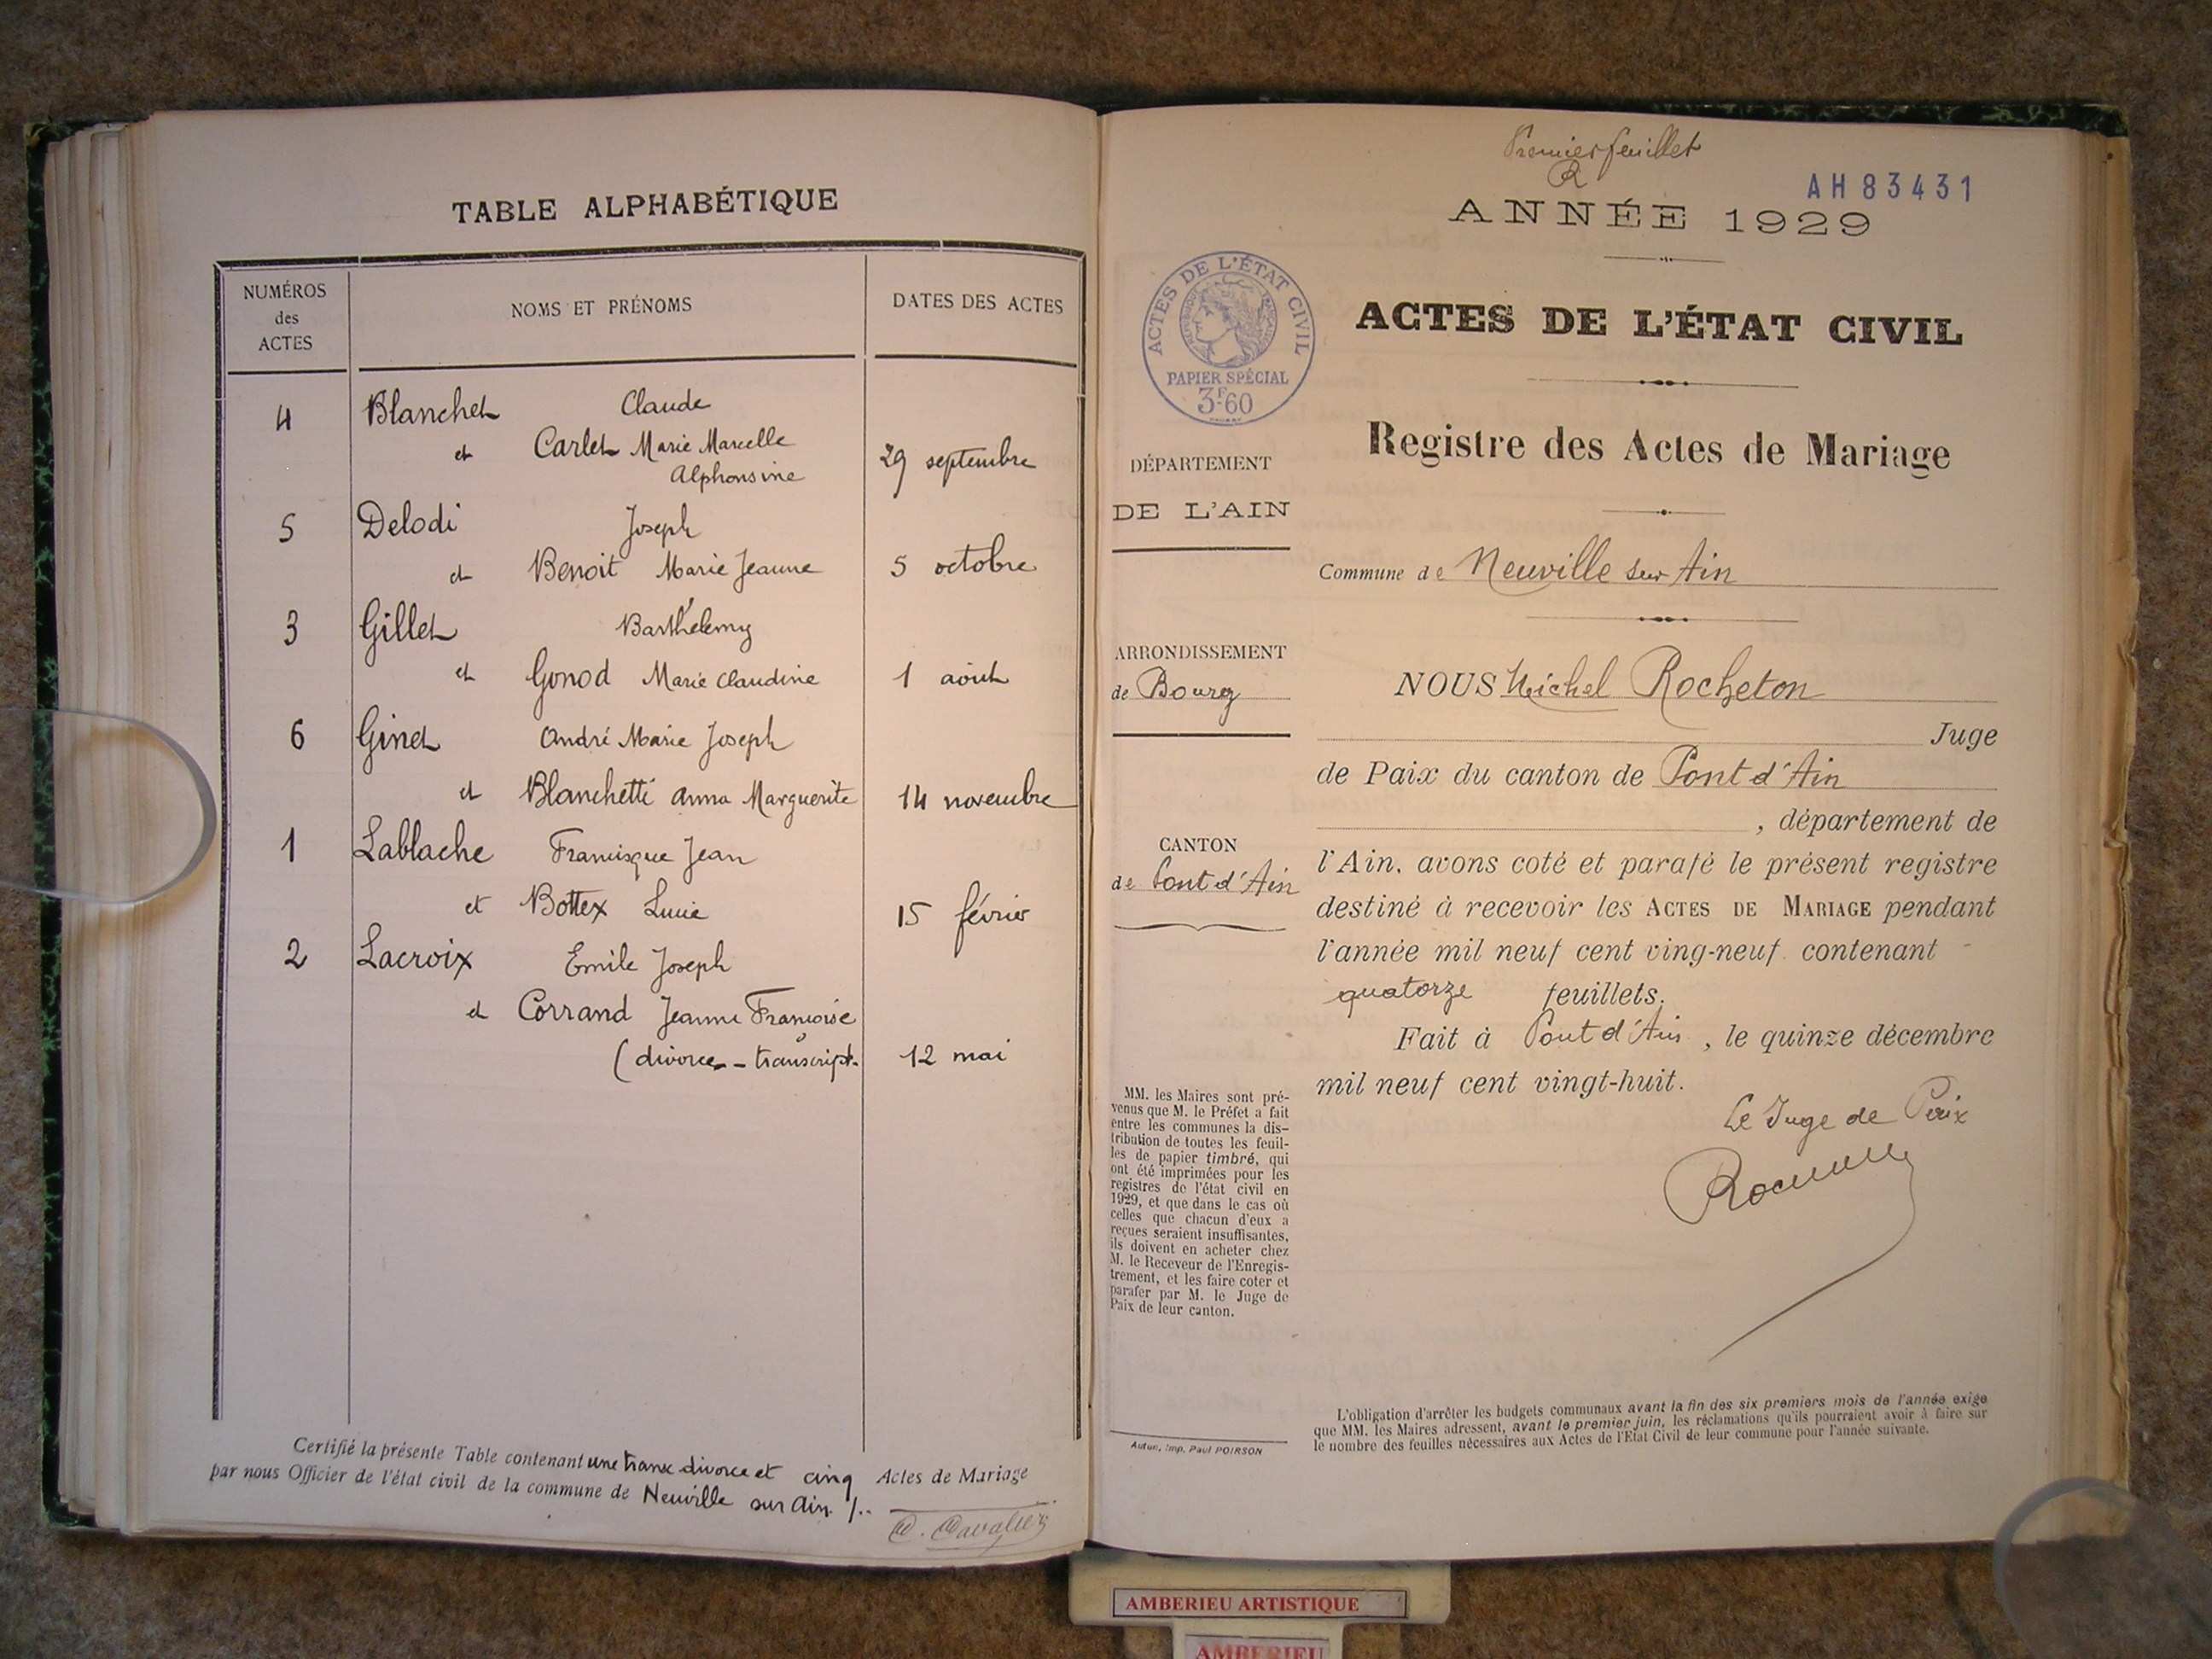 TABLE ALPHABÉTIQUE
NUMÉROS
des
ACTES
NOMS ET PRÉNOMS
DATES DES ACTES
4 Blanchet Claude
et Carlet Marie Marcelle
Alphonsine
29 septembre
5 Delodi Joseph
et Benoit Marie Jeanne 5 octobre
3 Gillet Barthélemy
et Gonod Marie Claudine 1 août
6 Ginet André Marie Joseph
et Blanchetti Anna Marguerite 14 novembre
1 Lablache Francisque Jean
et Bottex Lucie 15 février
2 Lacroix Emile Joseph
et Corrand Jeanne Françoise
(divorce - transcript. 12 mai
Certifié la présente Table contenant une trans divorce et cinq Actes de Mariage
par nous Officier de l'état civil de la commune de Neuville sur Ain /.
Premier feuillet
R
AH 83431
ANNÉE 1929
ACTES DE L'ÉTAT CIVIL
RÉPUBLIQUE FRANÇAISE
PAPIER SPÉCIAL
3F.60
ACTES DE L'ÉTAT CIVIL
Registre des Actes de Mariage
DÉPARTEMENT
DE L'AIN
Commune de Neuville sur Ain
ARRONDISSEMENT
de Bourg
CANTON
de Pont d'Ain
NOUS Michel Rocheton
Juge
de Paix du canton de Pont d'Ain
, département de
l'Ain, avons coté et parafé le présent registre
destiné à recevoir les ACTES DE MARIAGE pendant
l'année mil neuf cent ving-neuf contenant
quatorze feuillets.
Fait à Pont d'Ain, le quinze décembre
mil neuf cent vingt-huit.
Le Juge de Paix
MM. les Maires sont pré-
venus que M. le Préfet a fait
entre les communes la dis-
tribution de toutes les feuil-
les de papier timbré, qui
ont été imprimées pour les
registres de l'état civil en
1929, et que dans le cas où
celles que chacun d'eux a
reçues seraient insuffisantes,
ils doivent en acheter chez
M. le Receveur de l'Enregis-
trement, et les faire coter et
parafer par M. le Juge de
Paix de leur canton.
Autun, Imp. Paul POIRSON
L'obligation d'arrêter les budgets communaux avant la fin des six premiers mois de l'année exige
que MM. les Maires adressent, avant le premier juin, les réclamations qu'ils pourraient avoir à faire sur
le nombre des feuilles nécessaires aux Actes de l'Etat Civil de leur commune pour l'année suivante.
AMBERIEU ARTISTIQUE
AMBERIEU